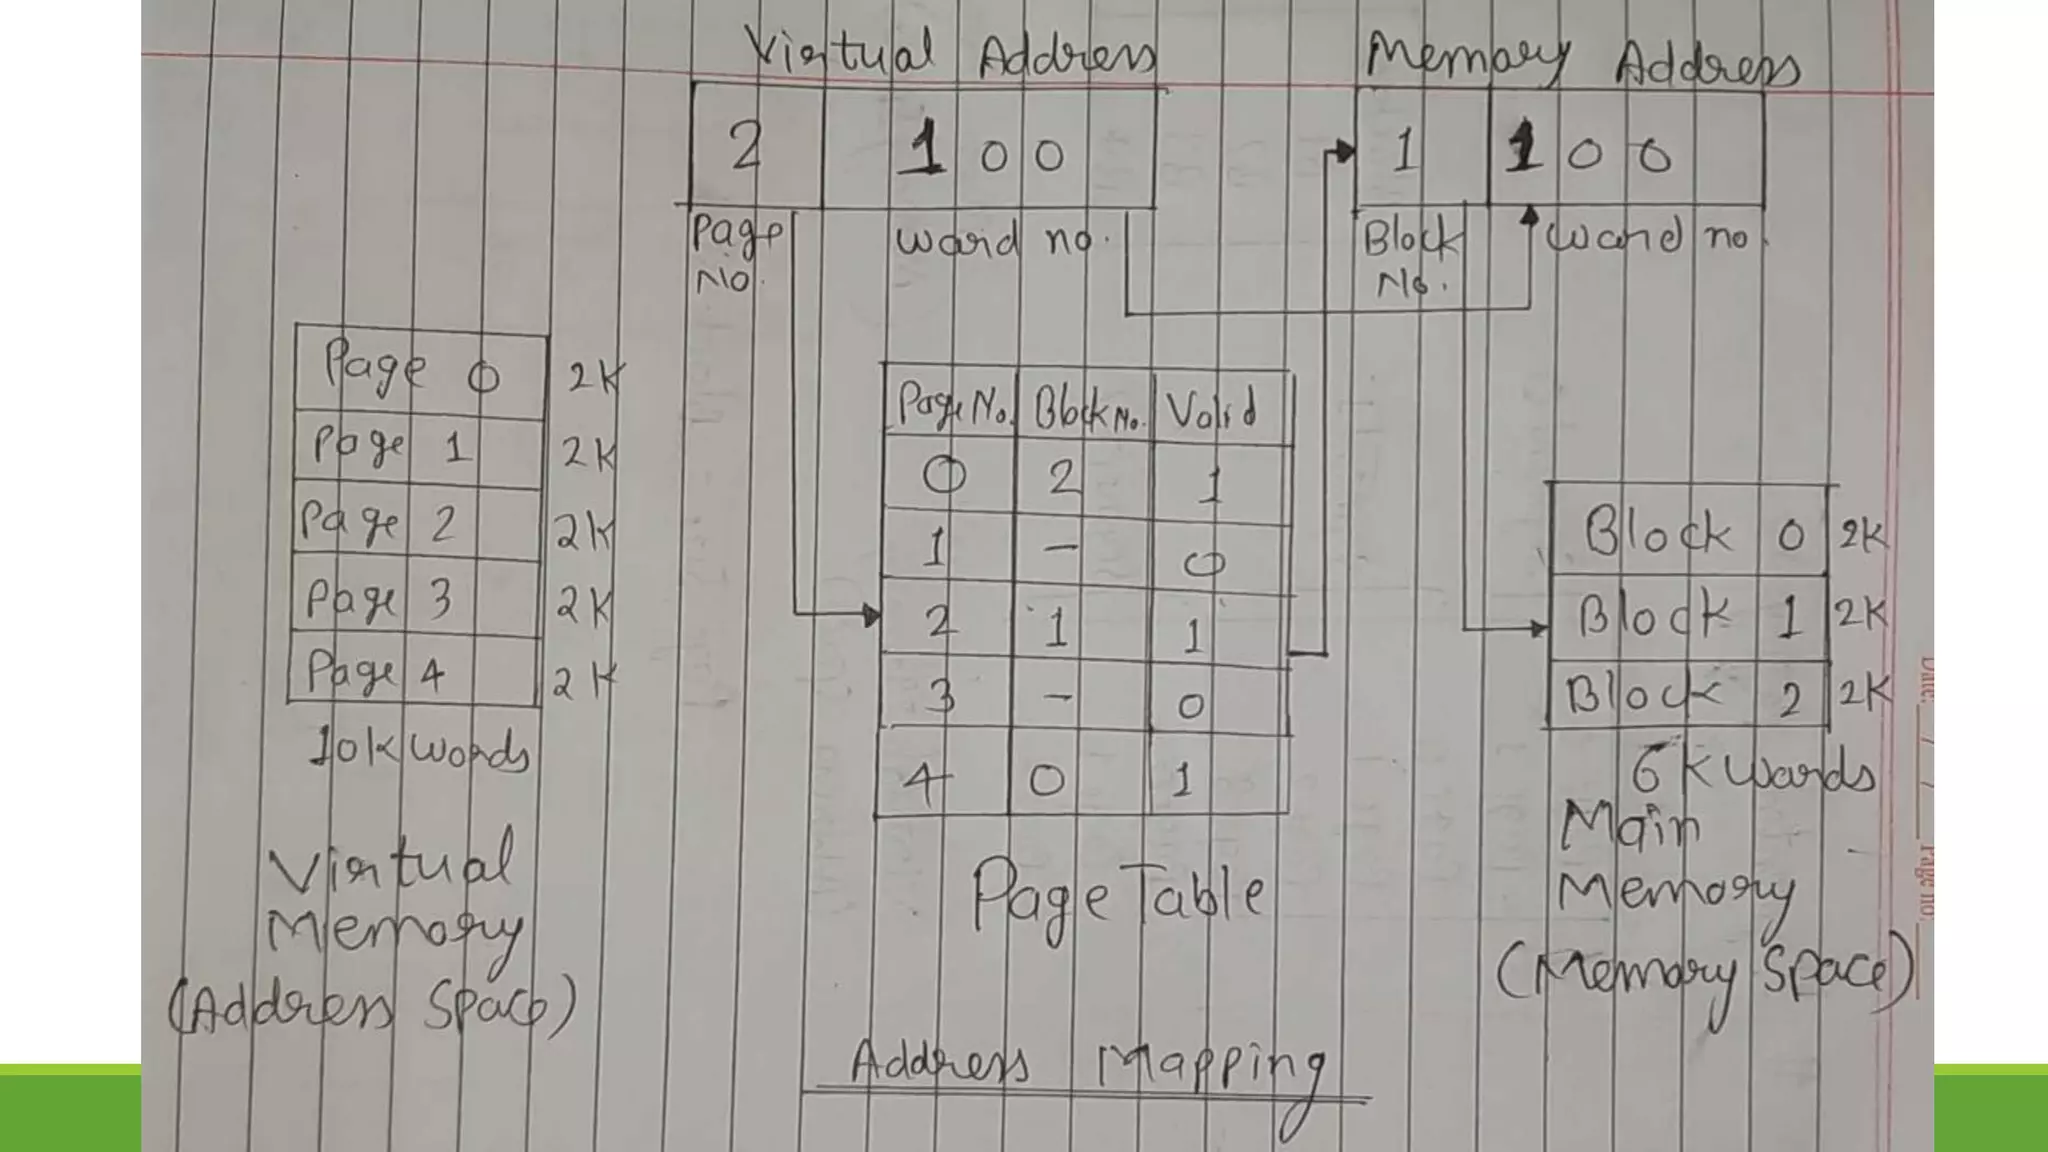 Virtual Address
2 100
Page No.
Word no.
Memory Address
1 100
Block No.
Word no.
Page 0 2K
Page 1 2K
Page 2 2K
Page 3 2K
Page 4 2K
10K Words
Virtual
Memory
(Address Space)
Page No. Block No. Valid
0 2 1
1 - 0
2 1 1
3 - 0
4 0 1
Page Table
Block 0 2K
Block 1 2K
Block 2 2K
6K Words
Main
Memory
(Memory Space)
Address Mapping
Date.
Page no.